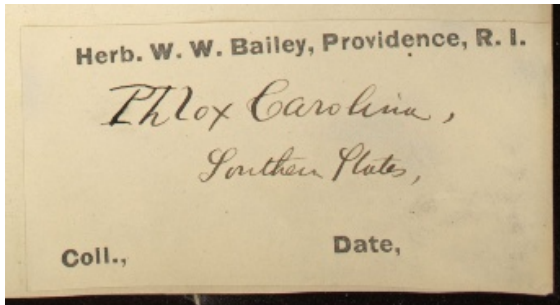 Herb. W. W. Bailey, Providence, R. I.
Phlox Carolina,
Southern States,
Coll.,
Date,